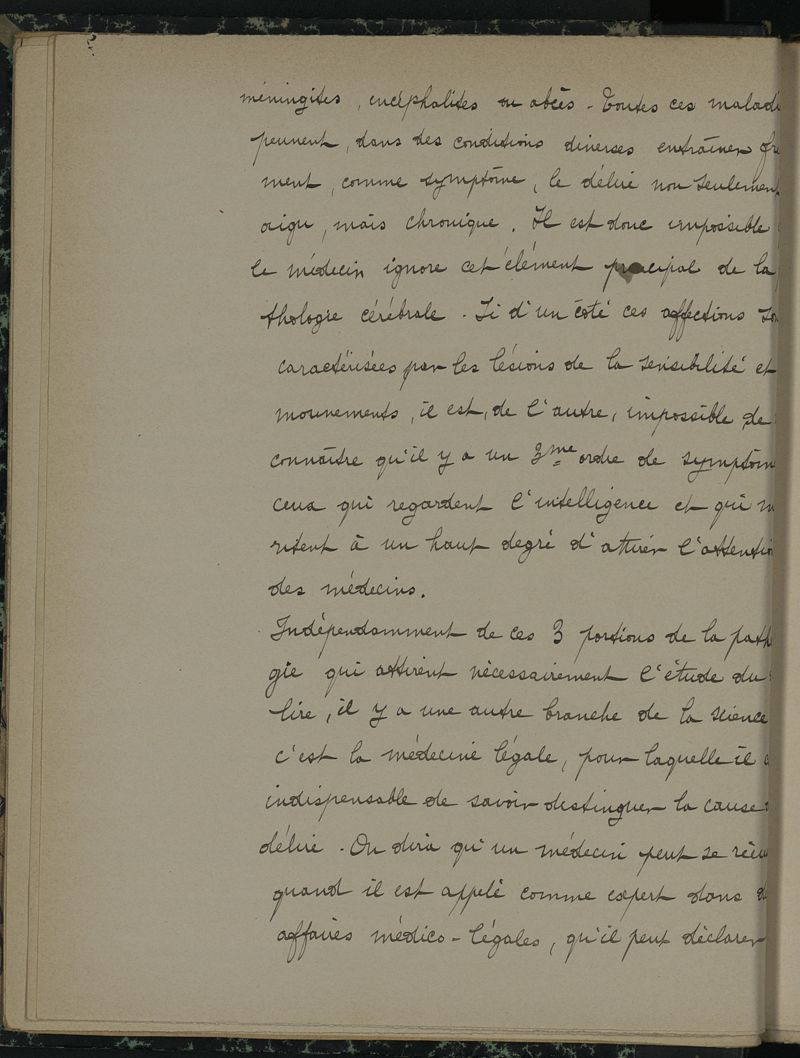 méningites, encéphalites ou abcès - Toutes ces maladi
peuvent, dans des conditions diverses entraîner fré
ment, comme symptôme, le délire non seulement
aigu, mais chronique. Il est donc impossible
le médecin ignore cet élément principal de la
thologie cérébrale. Si d'un côté ces affections so
caractérisées par les lésions de la sensibilité et
mouvements, il est, de l'autre, impossible de
connaître qu'il y a un 3me ordre de symptôm
ceux qui regardent l'intelligence et qui m
ritent à un haut degré d'attirer l'attentio
des médecins.
Indépendamment de ces 3 portions de la path
gie qui attirent nécessairement l'étude du
lire, il y a une autre branche de la science
c'est la médecine légale, pour laquelle il
indispensable de savoir distinguer la cause
délire. On dira qu'un médecin peut se récu
quand il est appelé comme expert dans d
affaires médico-légales, qu'il peut déclarer